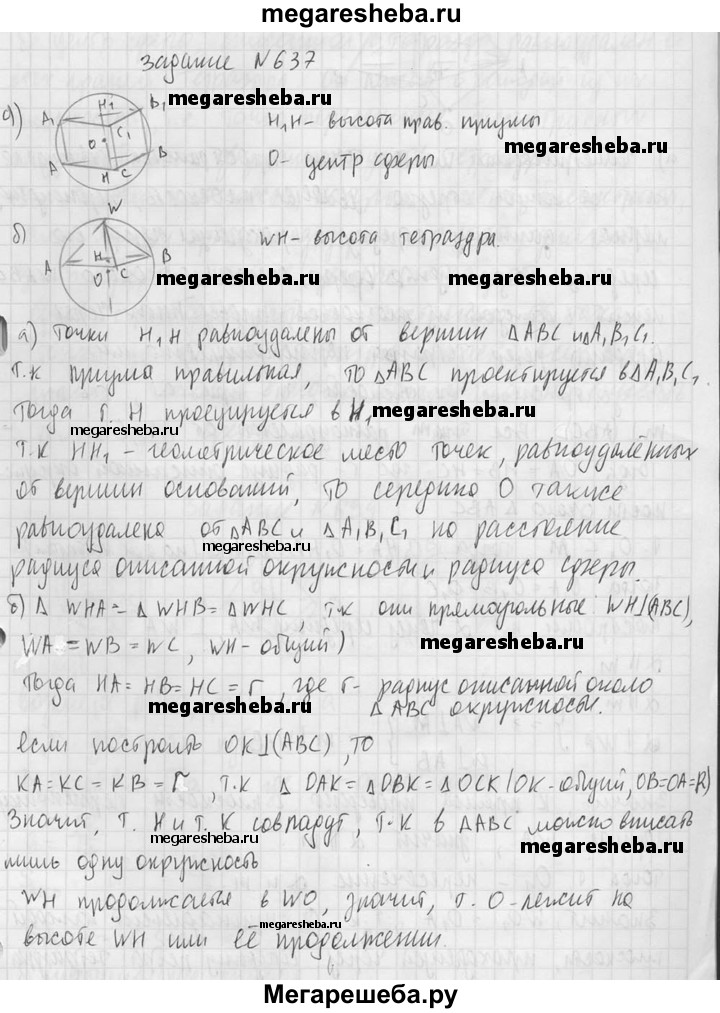 megaresheba.ru
задание N637
а)
A₁ H₁ B₁ C₁ O A H C B
H₁H - высота прав. призмы
O - центр сферы
megaresheba.ru
megaresheba.ru
б)
W A H O C B
WH - высота тетраэдра.
megaresheba.ru
megaresheba.ru
а) Точки H₁ H равноудалены от вершин ΔABC и ΔA₁B₁C₁.
т.к призма правильная, то ΔABC проектируется в ΔA₁B₁C₁.
Тогда т. H проецируется в H₁
megaresheba.ru
megaresheba.ru
т.к HH₁ - геометрическое место точек, равноудалённых
от вершин оснований, то середина O также
равноудалена от ΔABC и ΔA₁B₁C₁ на расстояние
megaresheba.ru
радиуса описанной окружности и радиуса сферы.
б) Δ WHA = Δ WHB = ΔWHC, т.к они прямоугольные WH⊥(ABC),
WA = WB = WC, WH - общий)
megaresheba.ru
Тогда HA = HB = HC = r, где r - радиус описанной около
Δ ABC окружности.
megaresheba.ru
если построить OK⊥(ABC), то
KA = KC = KB = r, т.к Δ OAK = ΔOBK = ΔOCK (OK - общий, OB=OA=R)
Значит, т. H и т. K совпадут, т.к в ΔABC можно вписать
megaresheba.ru
megaresheba.ru
лишь одну окружность
WH продолжается в WO, значит, т. O - лежит на
megaresheba.ru
высоте WH или её продолжении.
Мегарешеба.ру